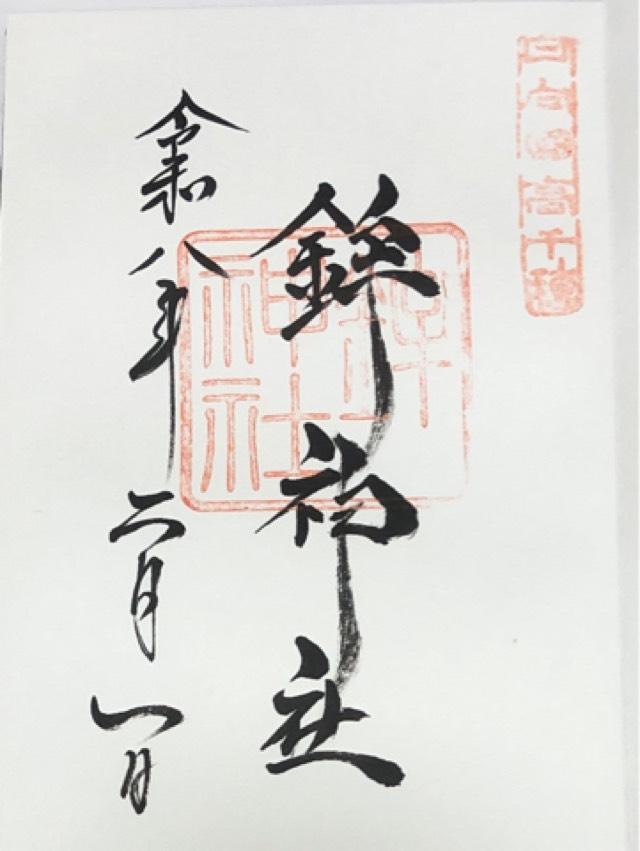 日向国高千穂
鉾神社
令和八年 二月一日
神社